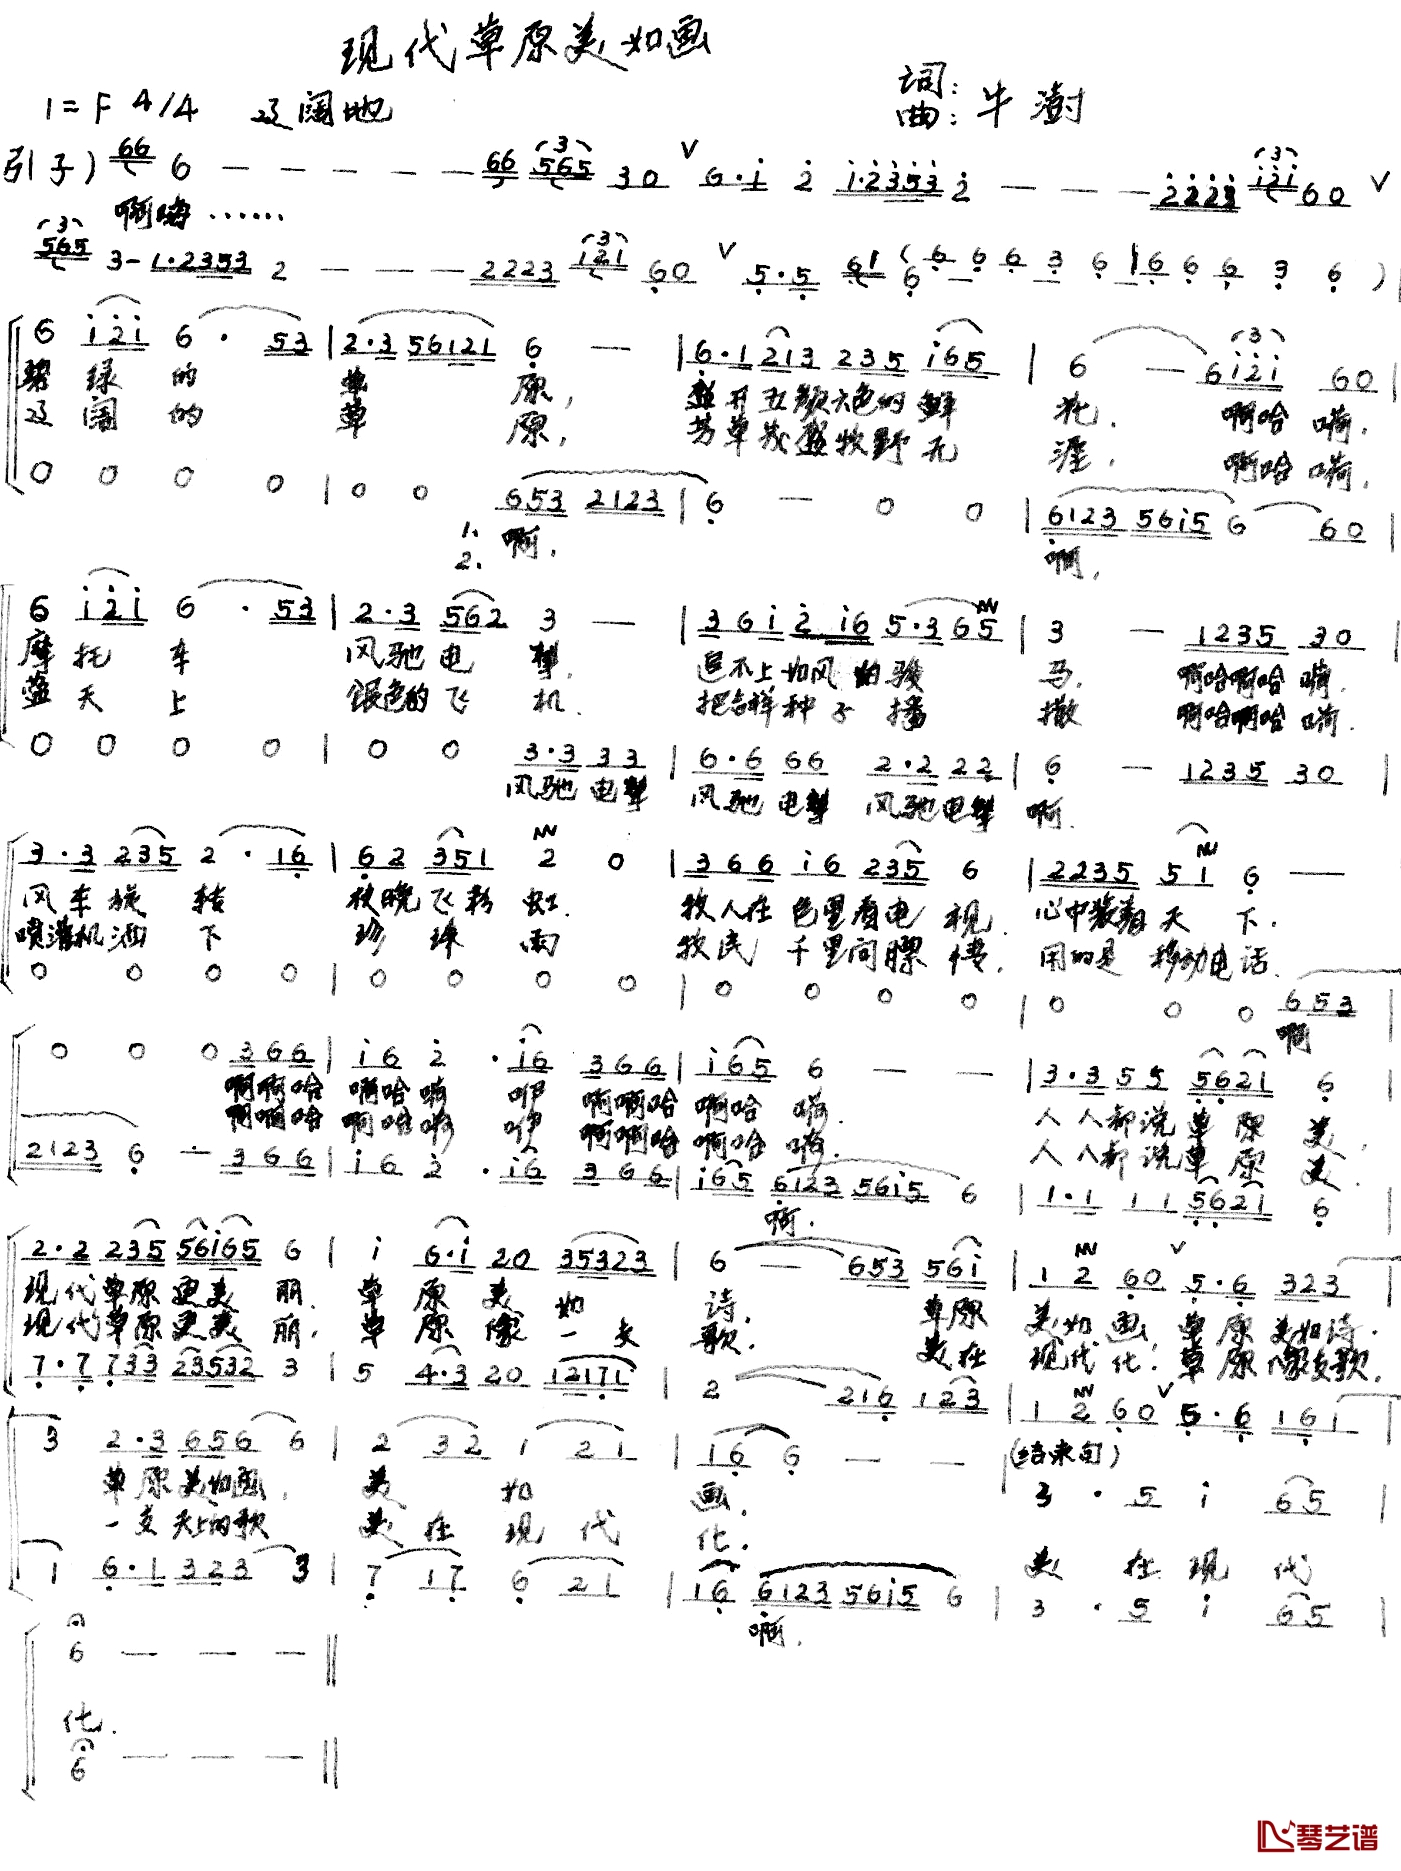 现代草原美如画
词:
曲: 牛澍
1=F 4/4 辽阔地
引子) 66 6 — — — — — 66 565 30 V 6·i 2 i·2353 2 — — — 2223 i2i 60 V
啊嗬……
565 3— 1·2353 2 — — — 2223 i2i 60 V 5·5 61 (6 6 6 3 6 | 6 6 6 3 6 ) |
6 i2i 6 · 53 | 2·3 56121 6 — | 6·1 213 235 i65 | 6 — 6i2i 60 |
碧绿的 草 原, 盛开五颜六色的鲜 花. 啊哈 嗬.
辽阔的 草 原, 芳草茂盛牧野无 涯. 啊哈 嗬.
0 0 0 0 | 0 0 653 2123 | 6 — 0 0 | 6123 56i5 6 60 |
1. 啊. 啊.
2.
6 i2i 6 · 53 | 2·3 562 3 — | 36i 2 i6 5·3 65 | 3 — 1235 30 |
摩托车 风驰电 掣. 追不上如风的骏 马. 啊哈啊哈 嗬.
蓝天上 银色的飞 机. 把各样种子播 撒 啊哈啊哈 嗬.
0 0 0 0 | 0 0 3·3 33 | 6·6 66 2·2 22 | 6 — 1235 30 |
风驰 电掣 风驰 电掣 风驰电掣 啊.
3·3 235 2 · 16 | 62 351 2 0 | 366 i6 235 6 | 2235 51 6 — |
风车旋 转 飞 虹. 牧人在 看电 视. 心中装着 天 下.
喷灌机洒 下 珍 珠 雨 牧民 千里间 情. 用的是 移动电话.
0 0 0 0 | 0 0 0 0 | 0 0 0 0 | 0 0 0 653 |
啊
0 0 0 366 | i6 2 · i6 366 | i65 6 — — | 3·3 55 5621 6 |
啊啊哈 啊哈嗬 咿 啊啊哈 啊哈 嗬. 人人都说 草原 美.
啊啊哈 啊哈嗬 咿 啊啊哈 啊哈 嗬. 人人都说 草原 美.
2123 6 — 366 | i6 2 · i6 366 | i65 6123 56i5 6 | 1·1 11 5621 6 |
啊.
2·2 235 56i65 6 | i 6·i 20 35323 | 6 — 653 56i | 1 2 60 V 5·6 323 |
现代草原更美 丽. 草 原 美 如 诗. 草原 美如画. 草原 美如诗.
现代草原更美 丽. 草 原 像 一 支 歌. 美在 现代化. 草原 像支歌.
7·7 733 23532 3 | 5 4·3 20 12171 | 2 216 123 | 1 2 60 V 5·6 161 |
3 2·3 656 6 | 2 32 1 21 | 16 6 — — | (结束句) 3 · 5 i 65 |
草原美如画. 美 如 画. 美 在 现 代
一支天上的歌 美 在 现 代 化.
1 6·1 323 3 | 7 17 6 21 | 16 6123 56i5 6 | 3 · 5 i 65 |
啊.
6 — — — ‖
化.
6 — — — ‖
琴艺谱